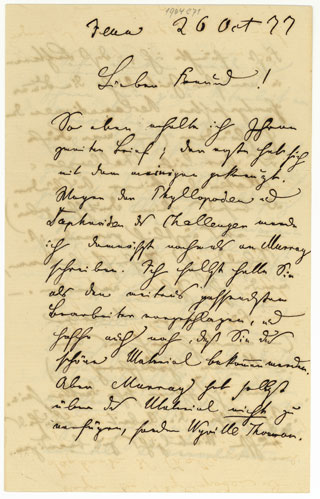 1904071
Jena 26 Oct 77
Lieber Freund!
So eben erhalte ich Ihren
zweiten Brief; der erste hat sich
mit dem meinigen gekreuzt.
Wegen der Phyllopoden u
des Challenger werde
ich demnächst nochmals an Murray
schreiben. Ich selbst habe Sie
als den weitaus passendsten
Bearbeiter vorgeschlagen, und
hoffe auch noch, daß Sie das
schöne Material bekommen werden.
Aber Murray hat selbst
über das Material nicht zu
verfügen, sondern Wyville Thomson.